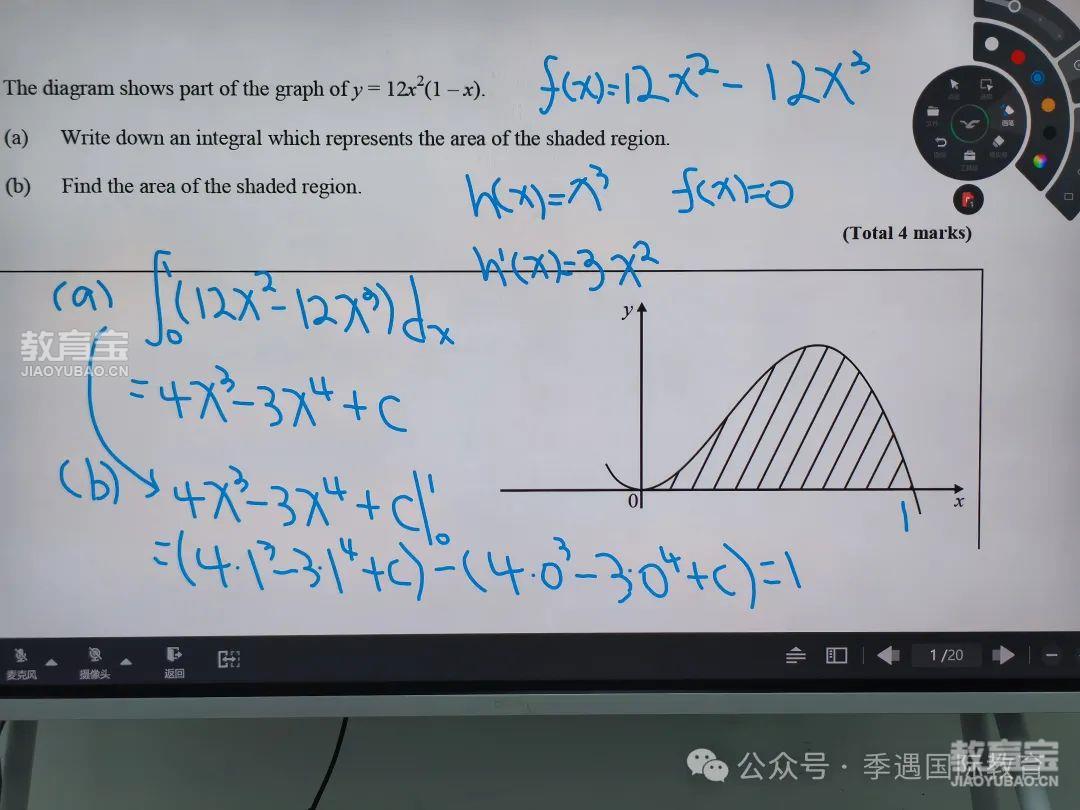 The diagram shows part of the graph of y = 12x²(1 – x).
f(x)=12x²-12x³
(a) Write down an integral which represents the area of the shaded region.
(b) Find the area of the shaded region.
h(x)=x³
f(x)=0
(Total 4 marks)
h'(x)=3x²
(a) ∫₀¹(12x²-12x³)dx
教育宝
JIAOYUBAO.CN
=4x³-3x⁴+c
(b) 4x³-3x⁴+c|₀¹
=(4·1³-3·1⁴+c)-(4·0³-3·0⁴+c)=1
y
0
1
x
麦克风
摄像头
返回
1 /20
公众号·季遇国际教育
教育宝
JIAOYUBAO.CN